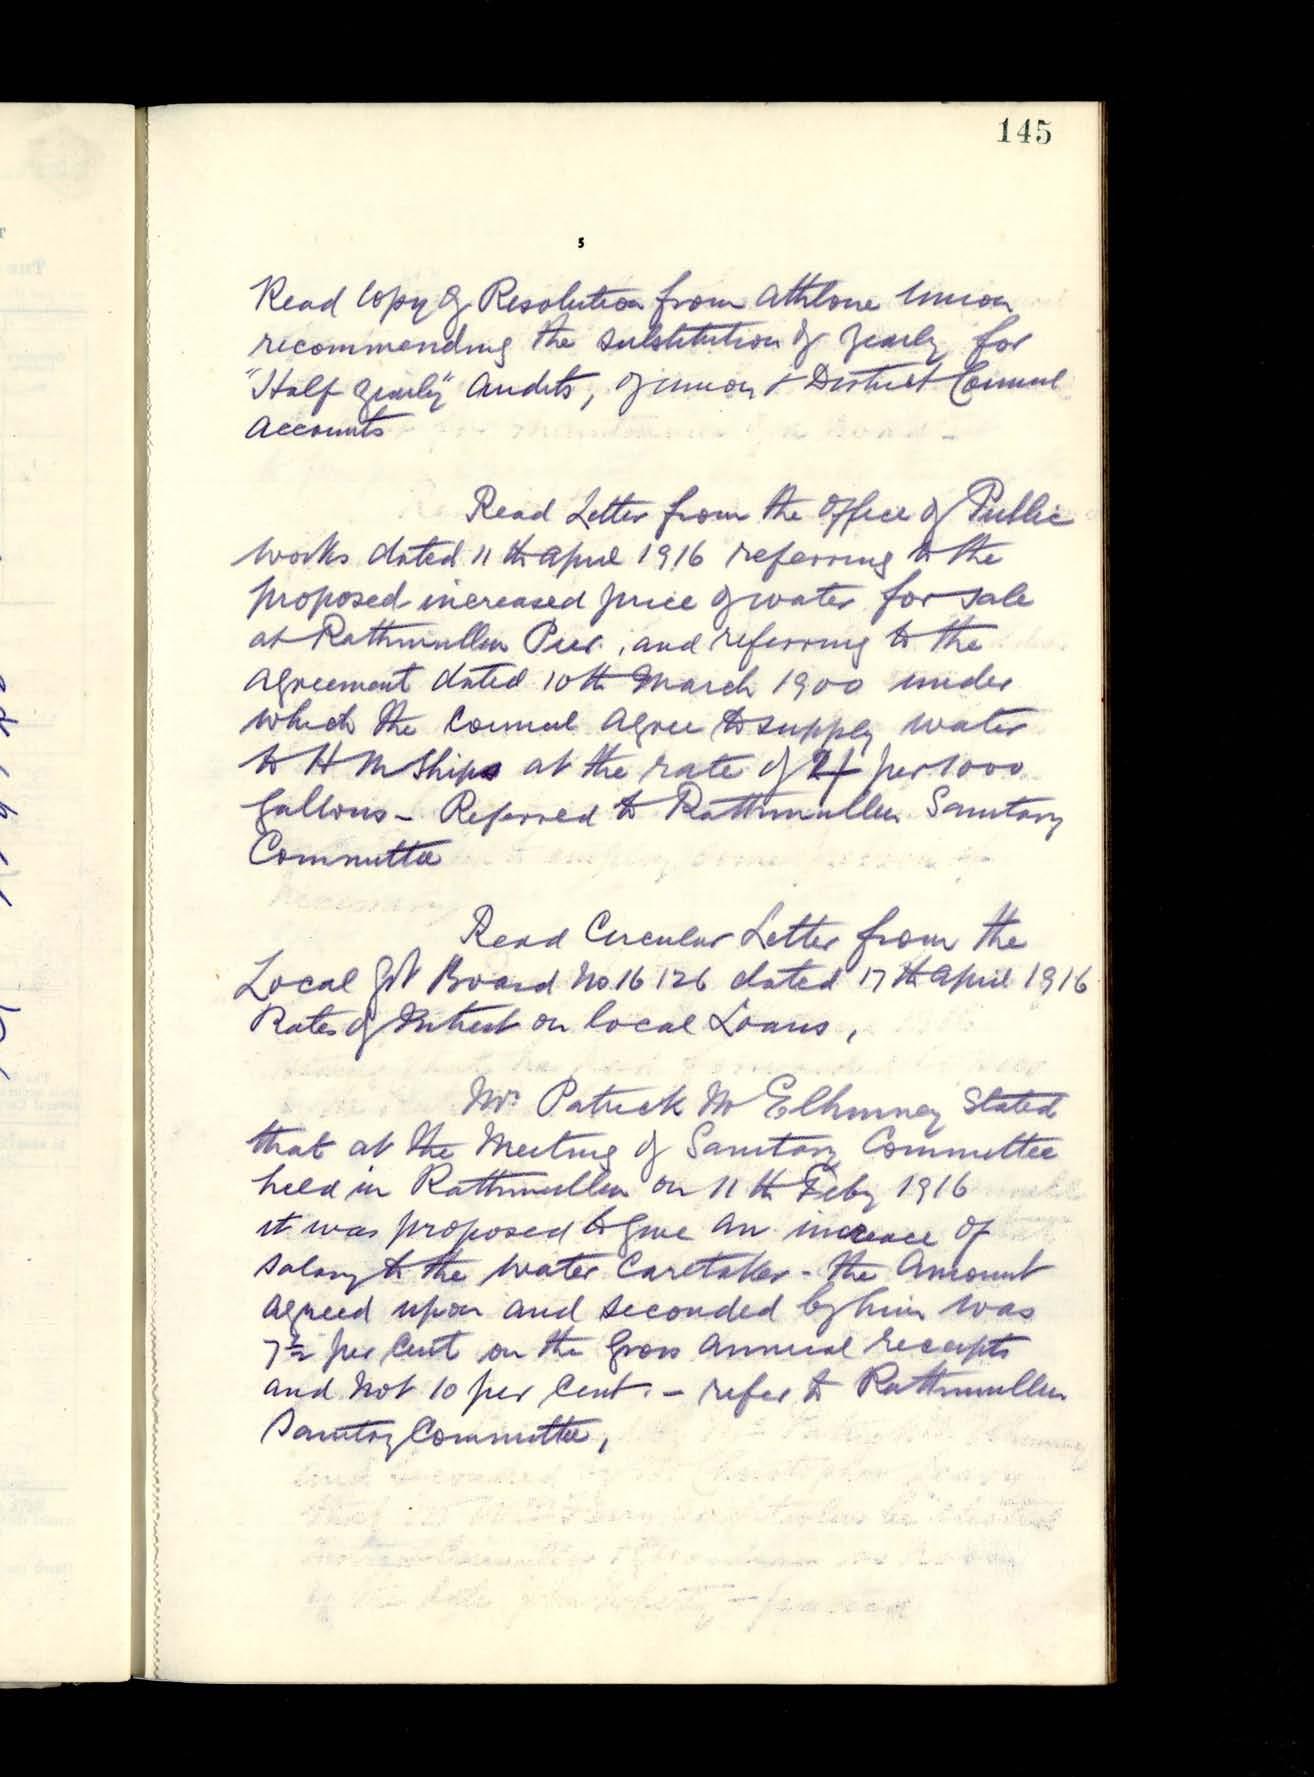 145
5
Read Copy of Resolution from Athlone Union
recommending the substitution of yearly for
"Half yearly" Audits, of Union & District Council
Accounts
Read Letter from the Office of Public
Works dated 11th April 1916 referring to the
proposed increased price of water for sale
at Rathmullen Pier, and referring to the
Agreement dated 10th March 1900 under
which the Council agree to supply water
to H M Ships at the rate of 2/ per 1000
Gallons - Referred to Rathmullen Sanitary
Committee
Read Circular Letter from the
Local Gvt Board No 16126 dated 17th April 1916
Rates of Intrest on local Loans,
Mr. Patrick Mc Elhinney Stated
that at the Meeting of Sanitary Committee
held in Rathmullen on 11th Feby 1916
it was proposed to give an increace of
Salary to the Water Caretaker - the Amount
agreed upon and seconded by him was
7½ per Cent on the Gross Annual receipts
and Not 10 per Cent. - refer to Rathmullen
Sanitary Committee,